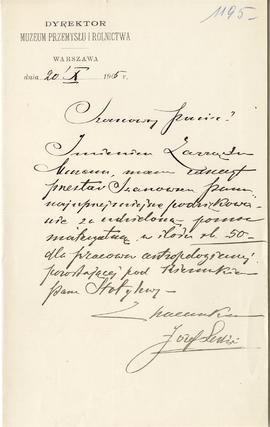 1195-
DYREKTOR
MUZEUM PRZEMYSŁU I ROLNICTWA
WARSZAWA
dnia 20/X 1905 r.
Szanowny Panie!
Imieniem Zarządu
Muzeum, mam zaszczyt
przesłać Szanownemu Panu
najuprzejmiejsze podziękowa-
nie za udzieloną pomoc
materyalną w ilości rb. 50-
dla pracowni antropologicznej
pozostającej pod kierunkiem
pana Stołyhwy-
Z szacunkiem
Józef